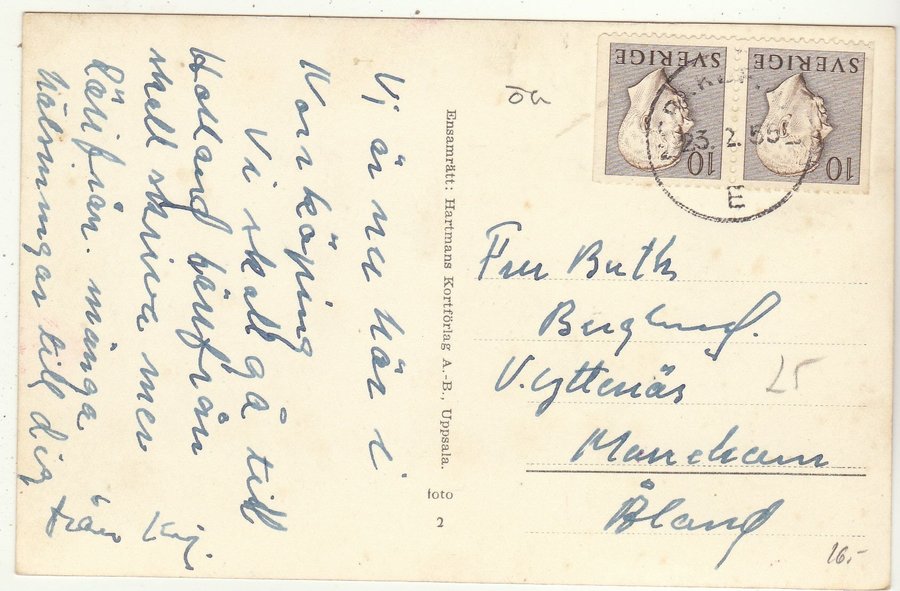 Vi är nu här i
Norrköping
Vi skall gå till
Holland härifrån
skall skriva mer
därifrån. många
hälsningar till dig
från
Ensamrätt: Hartmans Kortförlag A.-B., Uppsala.
foto
2
SVERIGE
10
SVERIGE
10
23. 2. 55
Fru Buth
Berglund.
V. Yttenäs
Åland
25
16.-